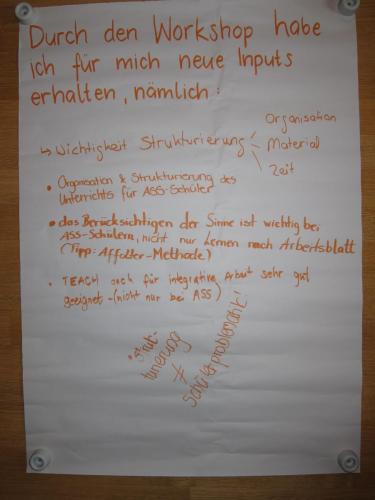 Durch den Workshop habe
ich für mich neue Inputs
erhalten, nämlich:
↳ Wichtigkeit Strukturierung
Organisation
Material
Zeit
• Organisation & Strukturierung des
Unterrichts für ASS-Schüler
• das Berücksichtigen der Sinne ist wichtig bei
ASS-Schülern, nicht nur Lernen nach Arbeitsblatt
(Tipp: Affolter-Methode)
• TEACH auch für integrative Arbeit sehr gut
geeignet - (nicht nur bei ASS)
• Struk-
turierung
≠
Schülerproblematik!